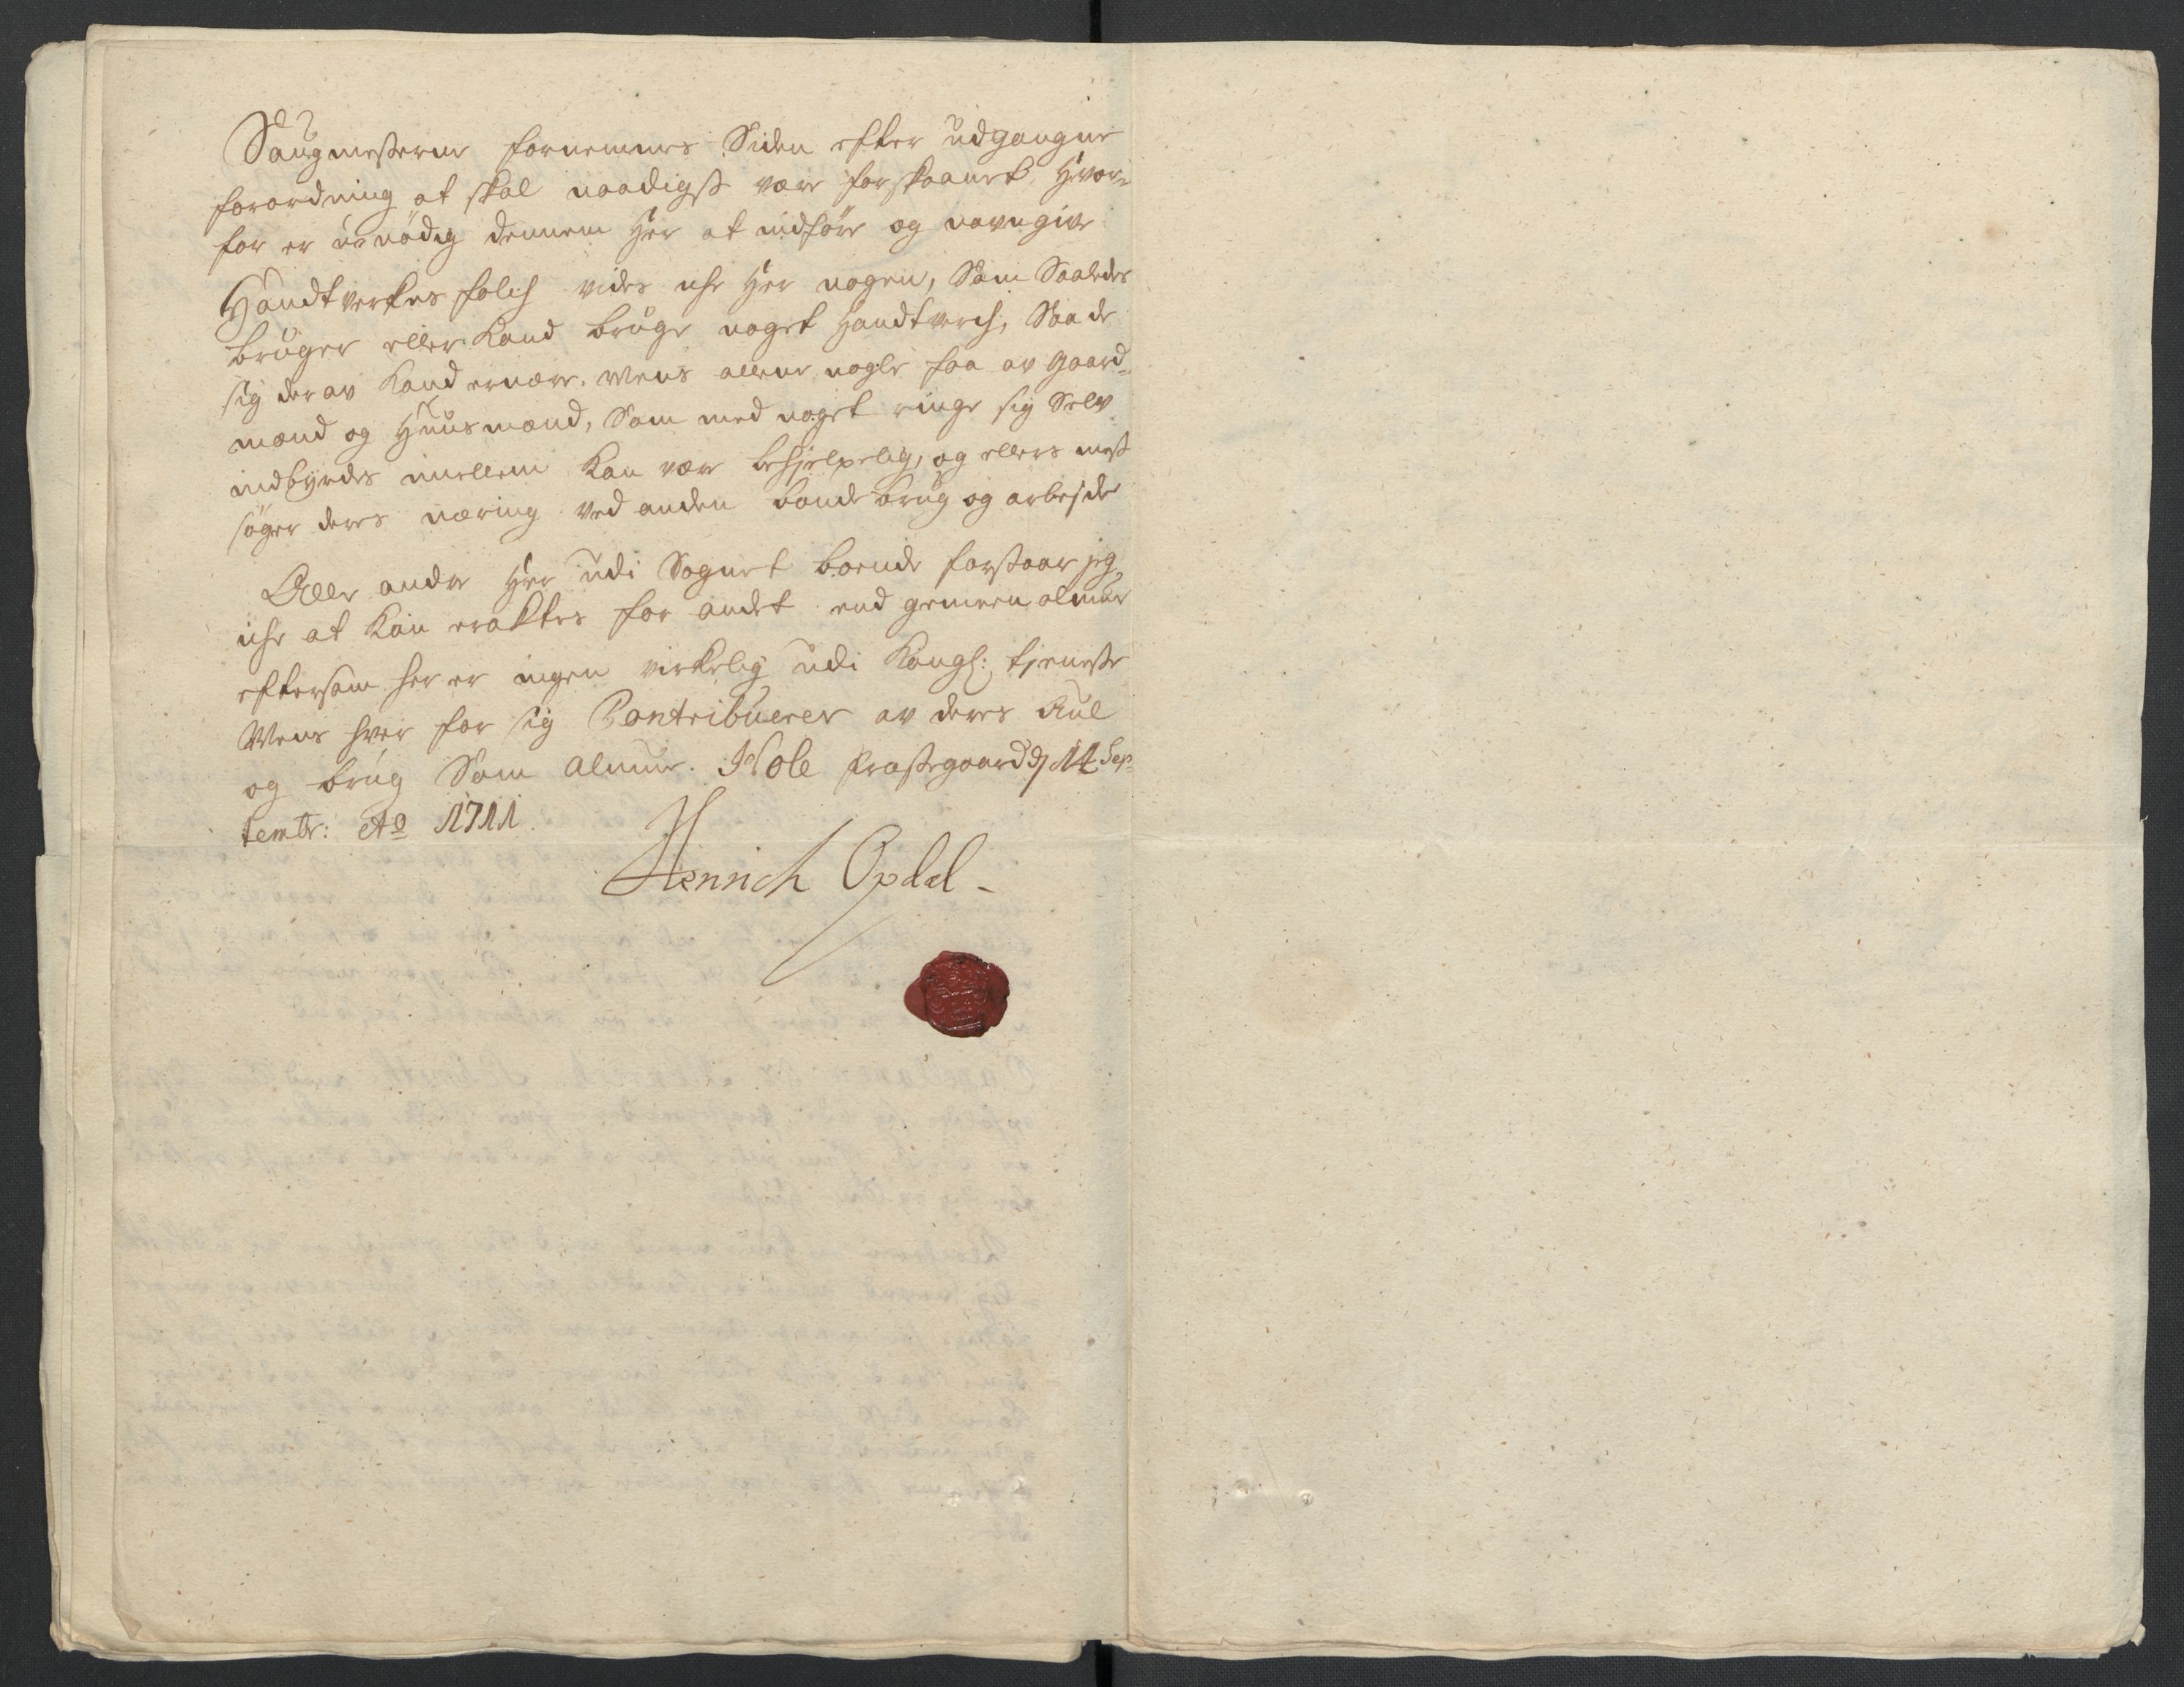 Saugmesterne fornemmes Siden efter udgangne
forordning at skal naadigst være forskaanet, Hvor-
for er u-nödig dennem Her at indføre og navngive
Handtverkes folch vides iche Her nogen, Som Saaledes
bruger eller Kand bruge noget Handtverch, Saa de
sig der av Kand ernære. Mens allene nogle faa av Gaard-
mænd og Huusmænd, Som med noget ringe sig Selv
indbyrdes imellem Kan være behjelpelig, og ellers mest
söger deres næring ved anden bonde brug og arbejde
Alle andre Her udi Sognet boende forstaar jeg
iche at Kan eraktes for andet end gemeen almue
eftersom her er ingen virkelig udi Kongl: tjeneste
Mens hver for sig Contribuerer av deres Aul
og brug Som Almue. Hole Præstegaard d 14 Sep-
tembr: Ao 1711.
Henrich Opdal